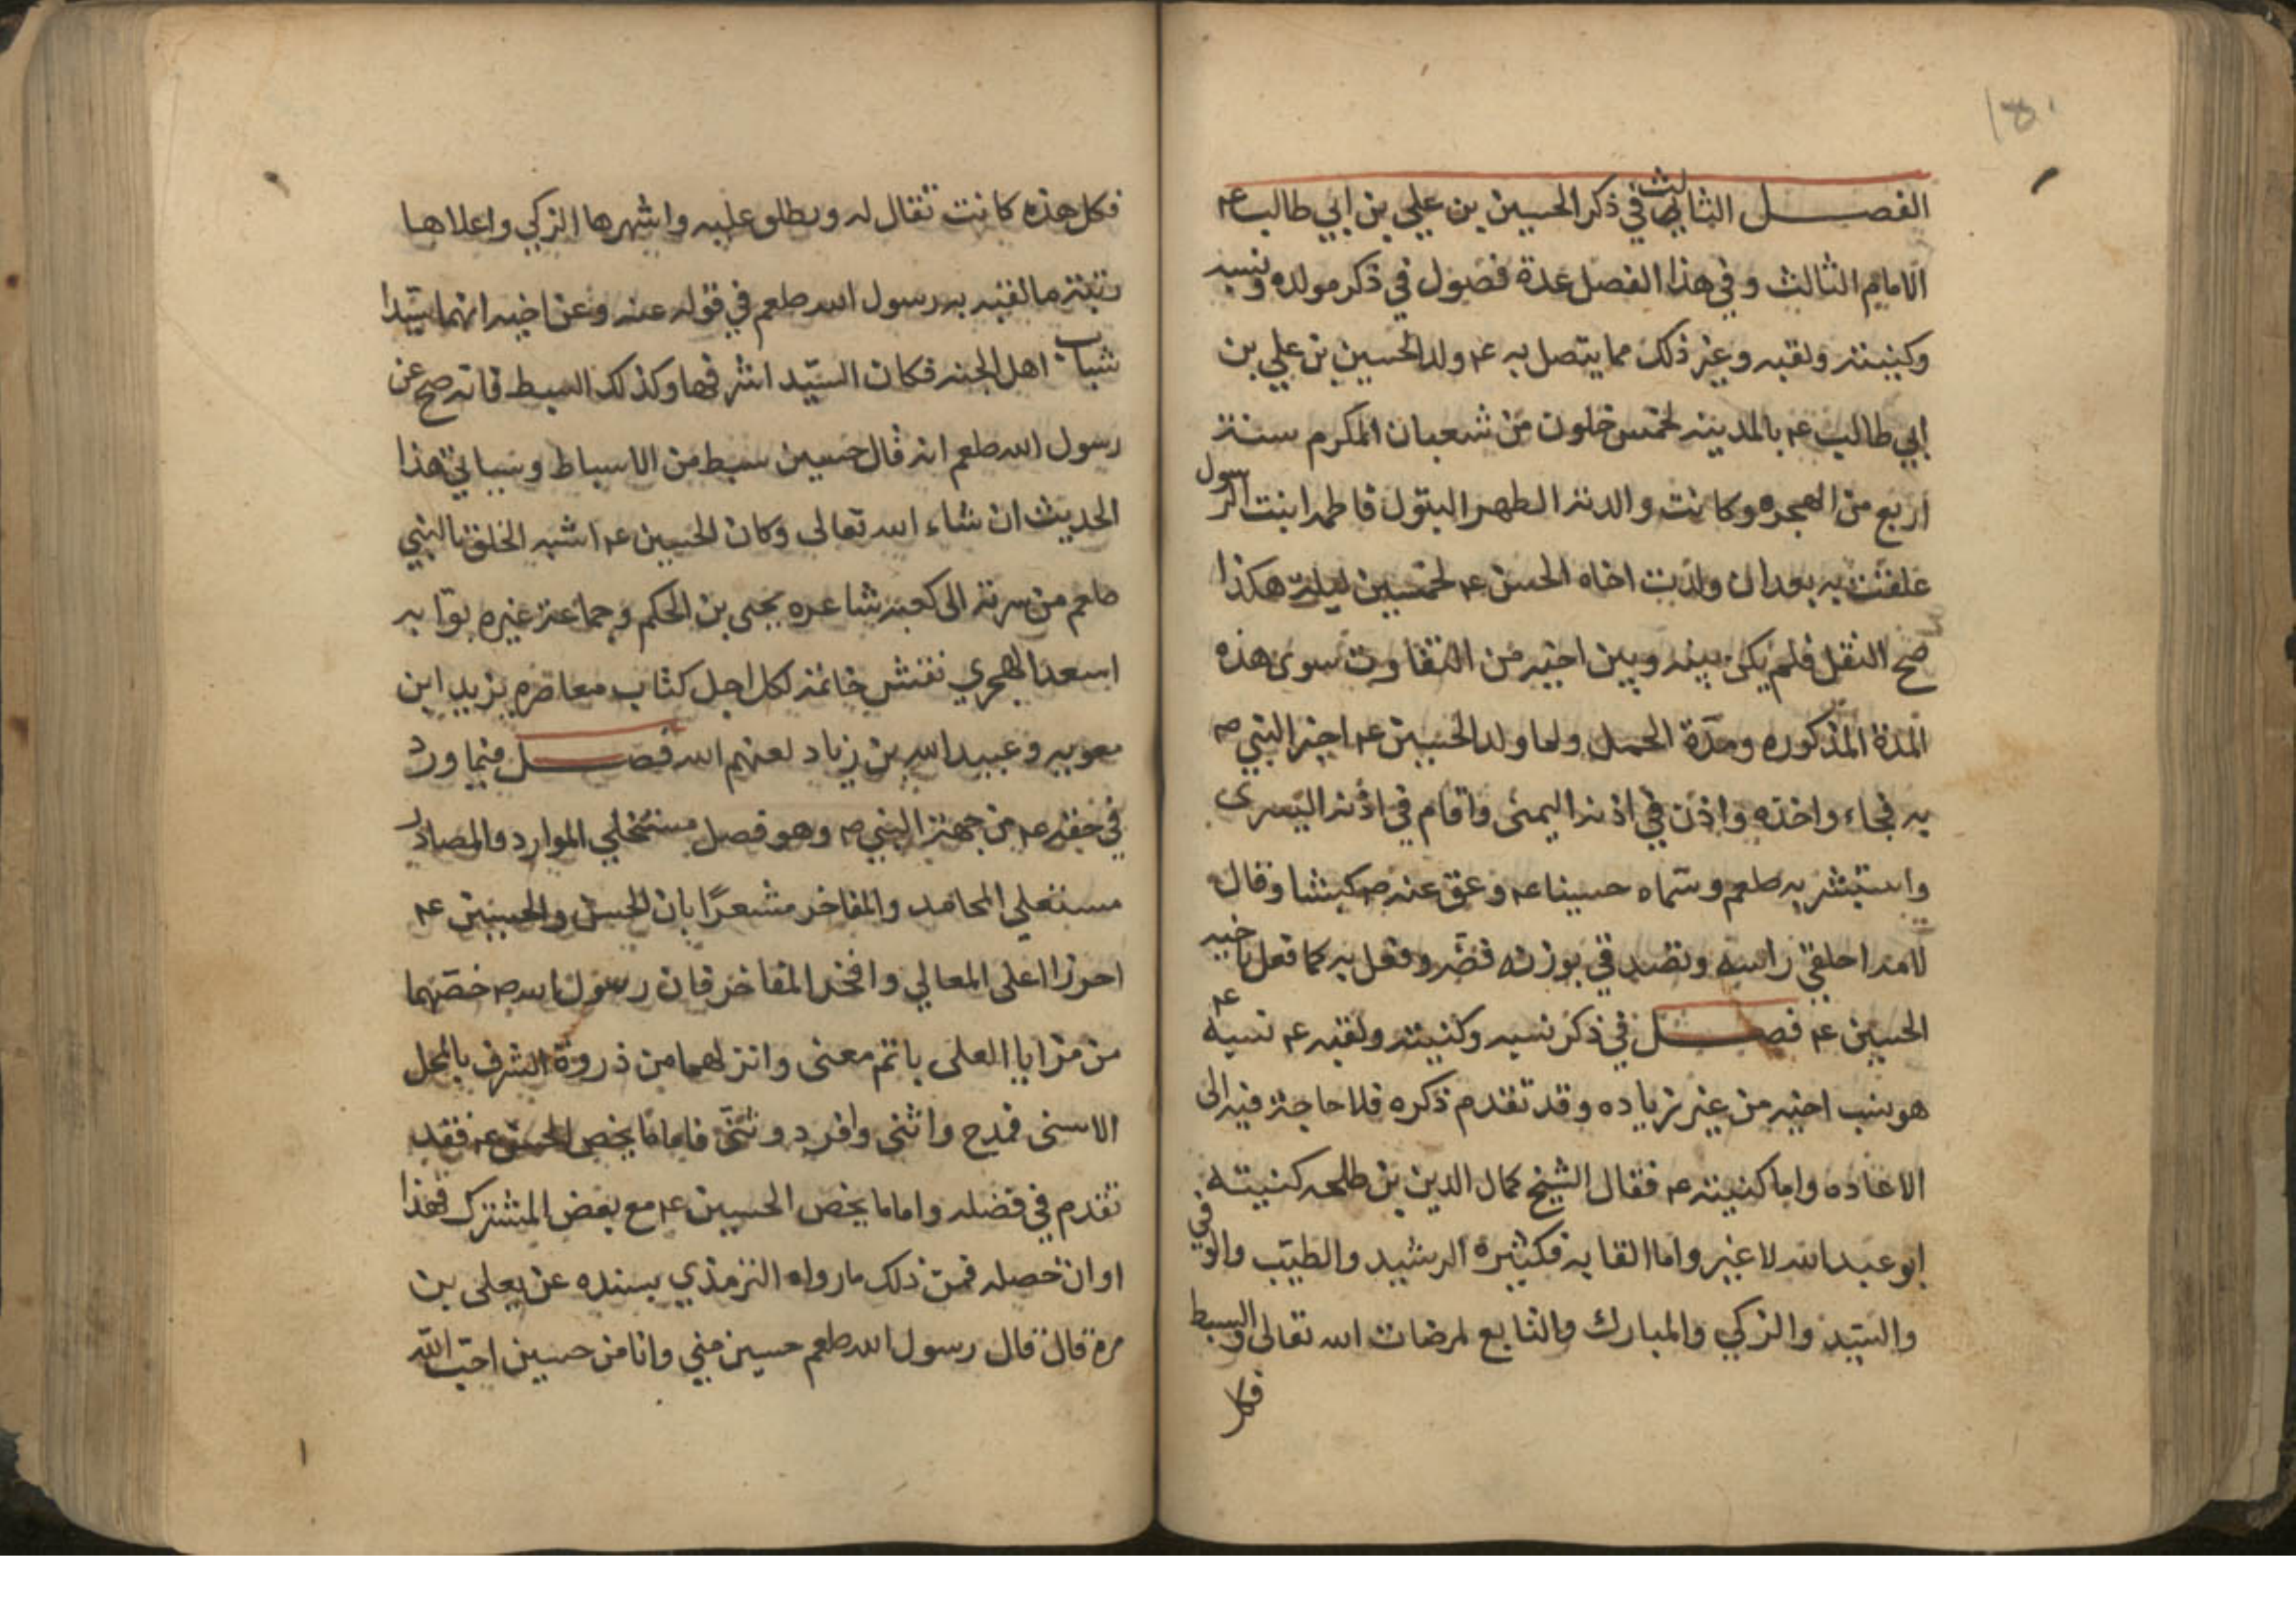 ١٥٠
الفصل الثالث في ذكر الحسين بن علي بن ابي طالب عم
الامام الثالث وفي هذا الفصل عدة فصول في ذكر مولده ونسبه
وكنيته ولقبه وغير ذلك مما يتصل به عم ولد الحسين بن علي بن
ابي طالب عم بالمدينه لخمس خلون من شعبان المكرم سنة
اربع من الهجره وكانت والدته الطهر البتول فاطمه ابنت الرسول
علقت به بعد ان ولدت اخاه الحسن عم لخمسين ليلة هكذا
صح النقل فلم يكن بينه وبين اخيه من التفاوت سوى هذه
المدة المذكوره ومدّة الحمل ولما ولد الحسين عم اخبر النبي صم
به فجاء واخذه واذن في اذنه اليمنى واقام في اذنه اليسرى
واستبشر به صلعم وسمّاه حسينا عم وعق عنه صم كبشا وقال
لامه احلقي راسه وتصدقي بوزنه فضه وفعل به كما فعل باخيه
الحسين عم فصل في ذكر نسبه وكنيته ولقبه عم نسبه عم
هو نسب اخيه من غير زياده وقد تقدم ذكره فلا حاجة فيه الى
الاعاده واما كنيته عم فقال الشيخ كمال الدين بن طلحه كنيته
ابو عبد الله لا غير واما القابه فكثيرة الرشيد والطيّب والوفي
والسّيد والزكي والمبارك والتابع لمرضات الله تعالى والسبط
فكل
فكل هذه كانت تقال له ويطلق عليه واشهرها الزكي واعلاها
رتبة ما لقبه به رسول الله صلعم في قوله عنه وعن اخيه انهما سيّدا
شباب اهل الجنه فكان السيّد اشرفها وكذلك السبط فانه صح عن
رسول الله صلعم انه قال حسين سبط من الاسباط وسياتي هذا
الحديث ان شاء الله تعالى وكان الحسين عم اشبه الخلق بالنبي
صلعم من سرته الى كعبه شاعره يحيى بن الحكم وجماعة غيره بوابه
اسعد الهجري نقش خاتمه لكل اجل كتاب معاصره يزيد ابن
معويه وعبيد الله بن زياد لعنهم الله فصل فيما ورد
في حقه عم من جهة النبي صم وهو فصل مستحلي الموارد والمصادر
مستعلي المحامد والمفاخر مشعرًا بان الحسن والحسين عم
احرزا اعلى المعالي وافخر المفاخر فان رسول الله صم خصّهما
من مزايا العلى باتم معنى وانزلهما من ذروة الشرف بالمحل
الاسنى فمدح واثنى وافرد وثنّى فاما ما يخص الحسن عم فقد
تقدم في فضله واما ما يخص الحسين عم مع بعض المشترك فهذا
اوان حصله فمن ذلك ما رواه الترمذي بسنده عن يعلى بن
مرة قال قال رسول الله صلعم حسين مني وانا من حسين احبّ الله